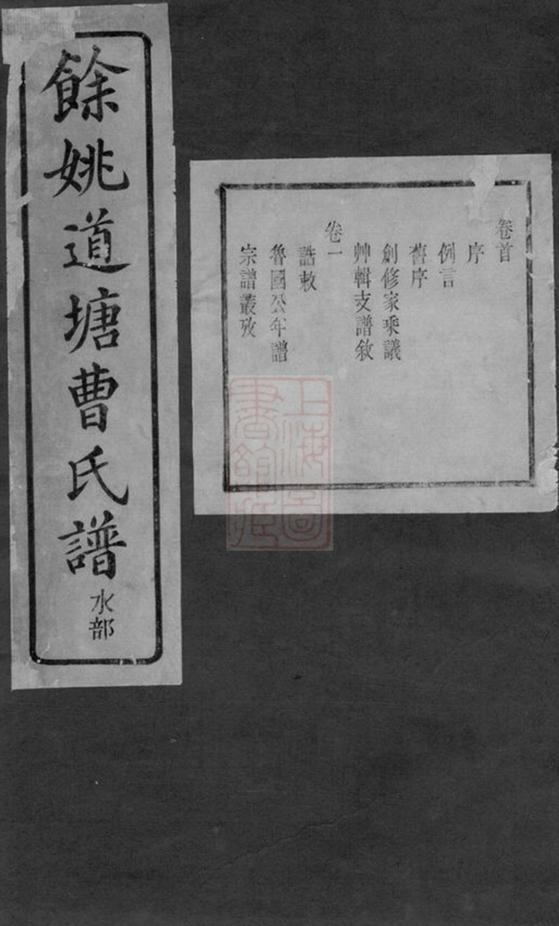 餘姚道塘曹氏譜
水部
卷首
序
例言
舊序
創修家乘議
艸輯支譜敘
卷一
誥敕
魯國公年譜
宗譜叢攷
上海圖
書館藏